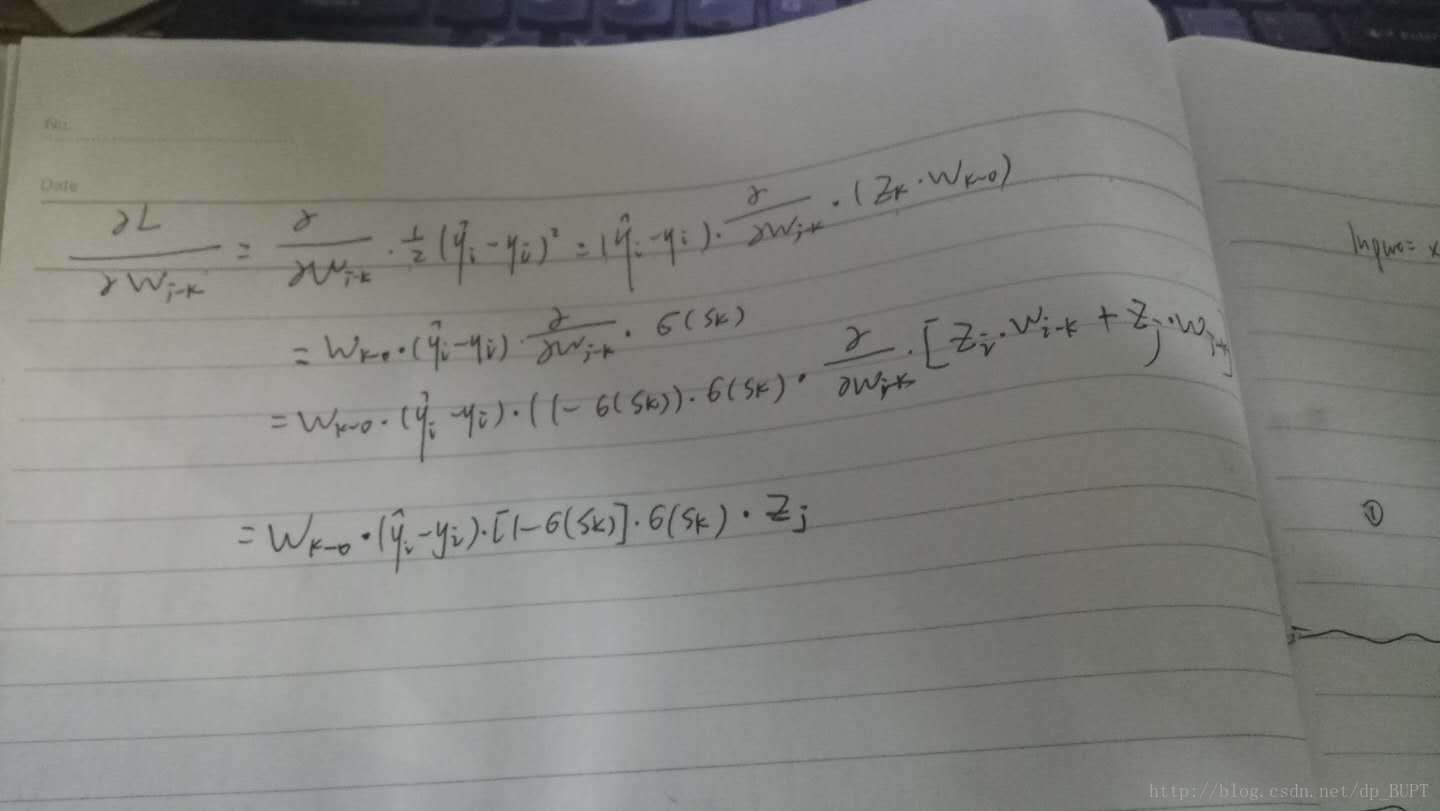 No.
Date
∂L/∂W_{j-k} = ∂/∂W_{j-k} · 1/2 (ŷ_i - y_i)² = (ŷ_i - y_i) · ∂/∂W_{j-k} · (Z_K · W_{K-0})
= W_{K-0} · (ŷ_i - y_i) · ∂/∂W_{j-k} · σ(S_K)
= W_{K-0} · (ŷ_i - y_i) · (1 - σ(S_K)) · σ(S_K) · ∂/∂W_{j-k} · [Z_i · W_{i-k} + Z_j · W_{j-k}]
= W_{K-0} · (ŷ_i - y_i) · [1 - σ(S_K)] · σ(S_K) · Z_j
①
http://blog.csdn.net/dp_BUPT